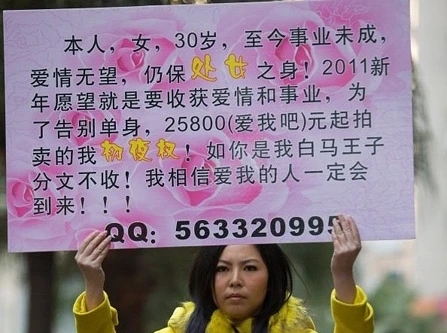 本人，女，30岁，至今事业未成，
爱情无望，仍保处女之身！2011新
年愿望就是要收获爱情和事业，为
了告别单身，25800(爱我吧)元起拍
卖的我初夜权！如你是我白马王子
分文不收！我相信爱我的人一定会
到来！！！
QQ：563320995